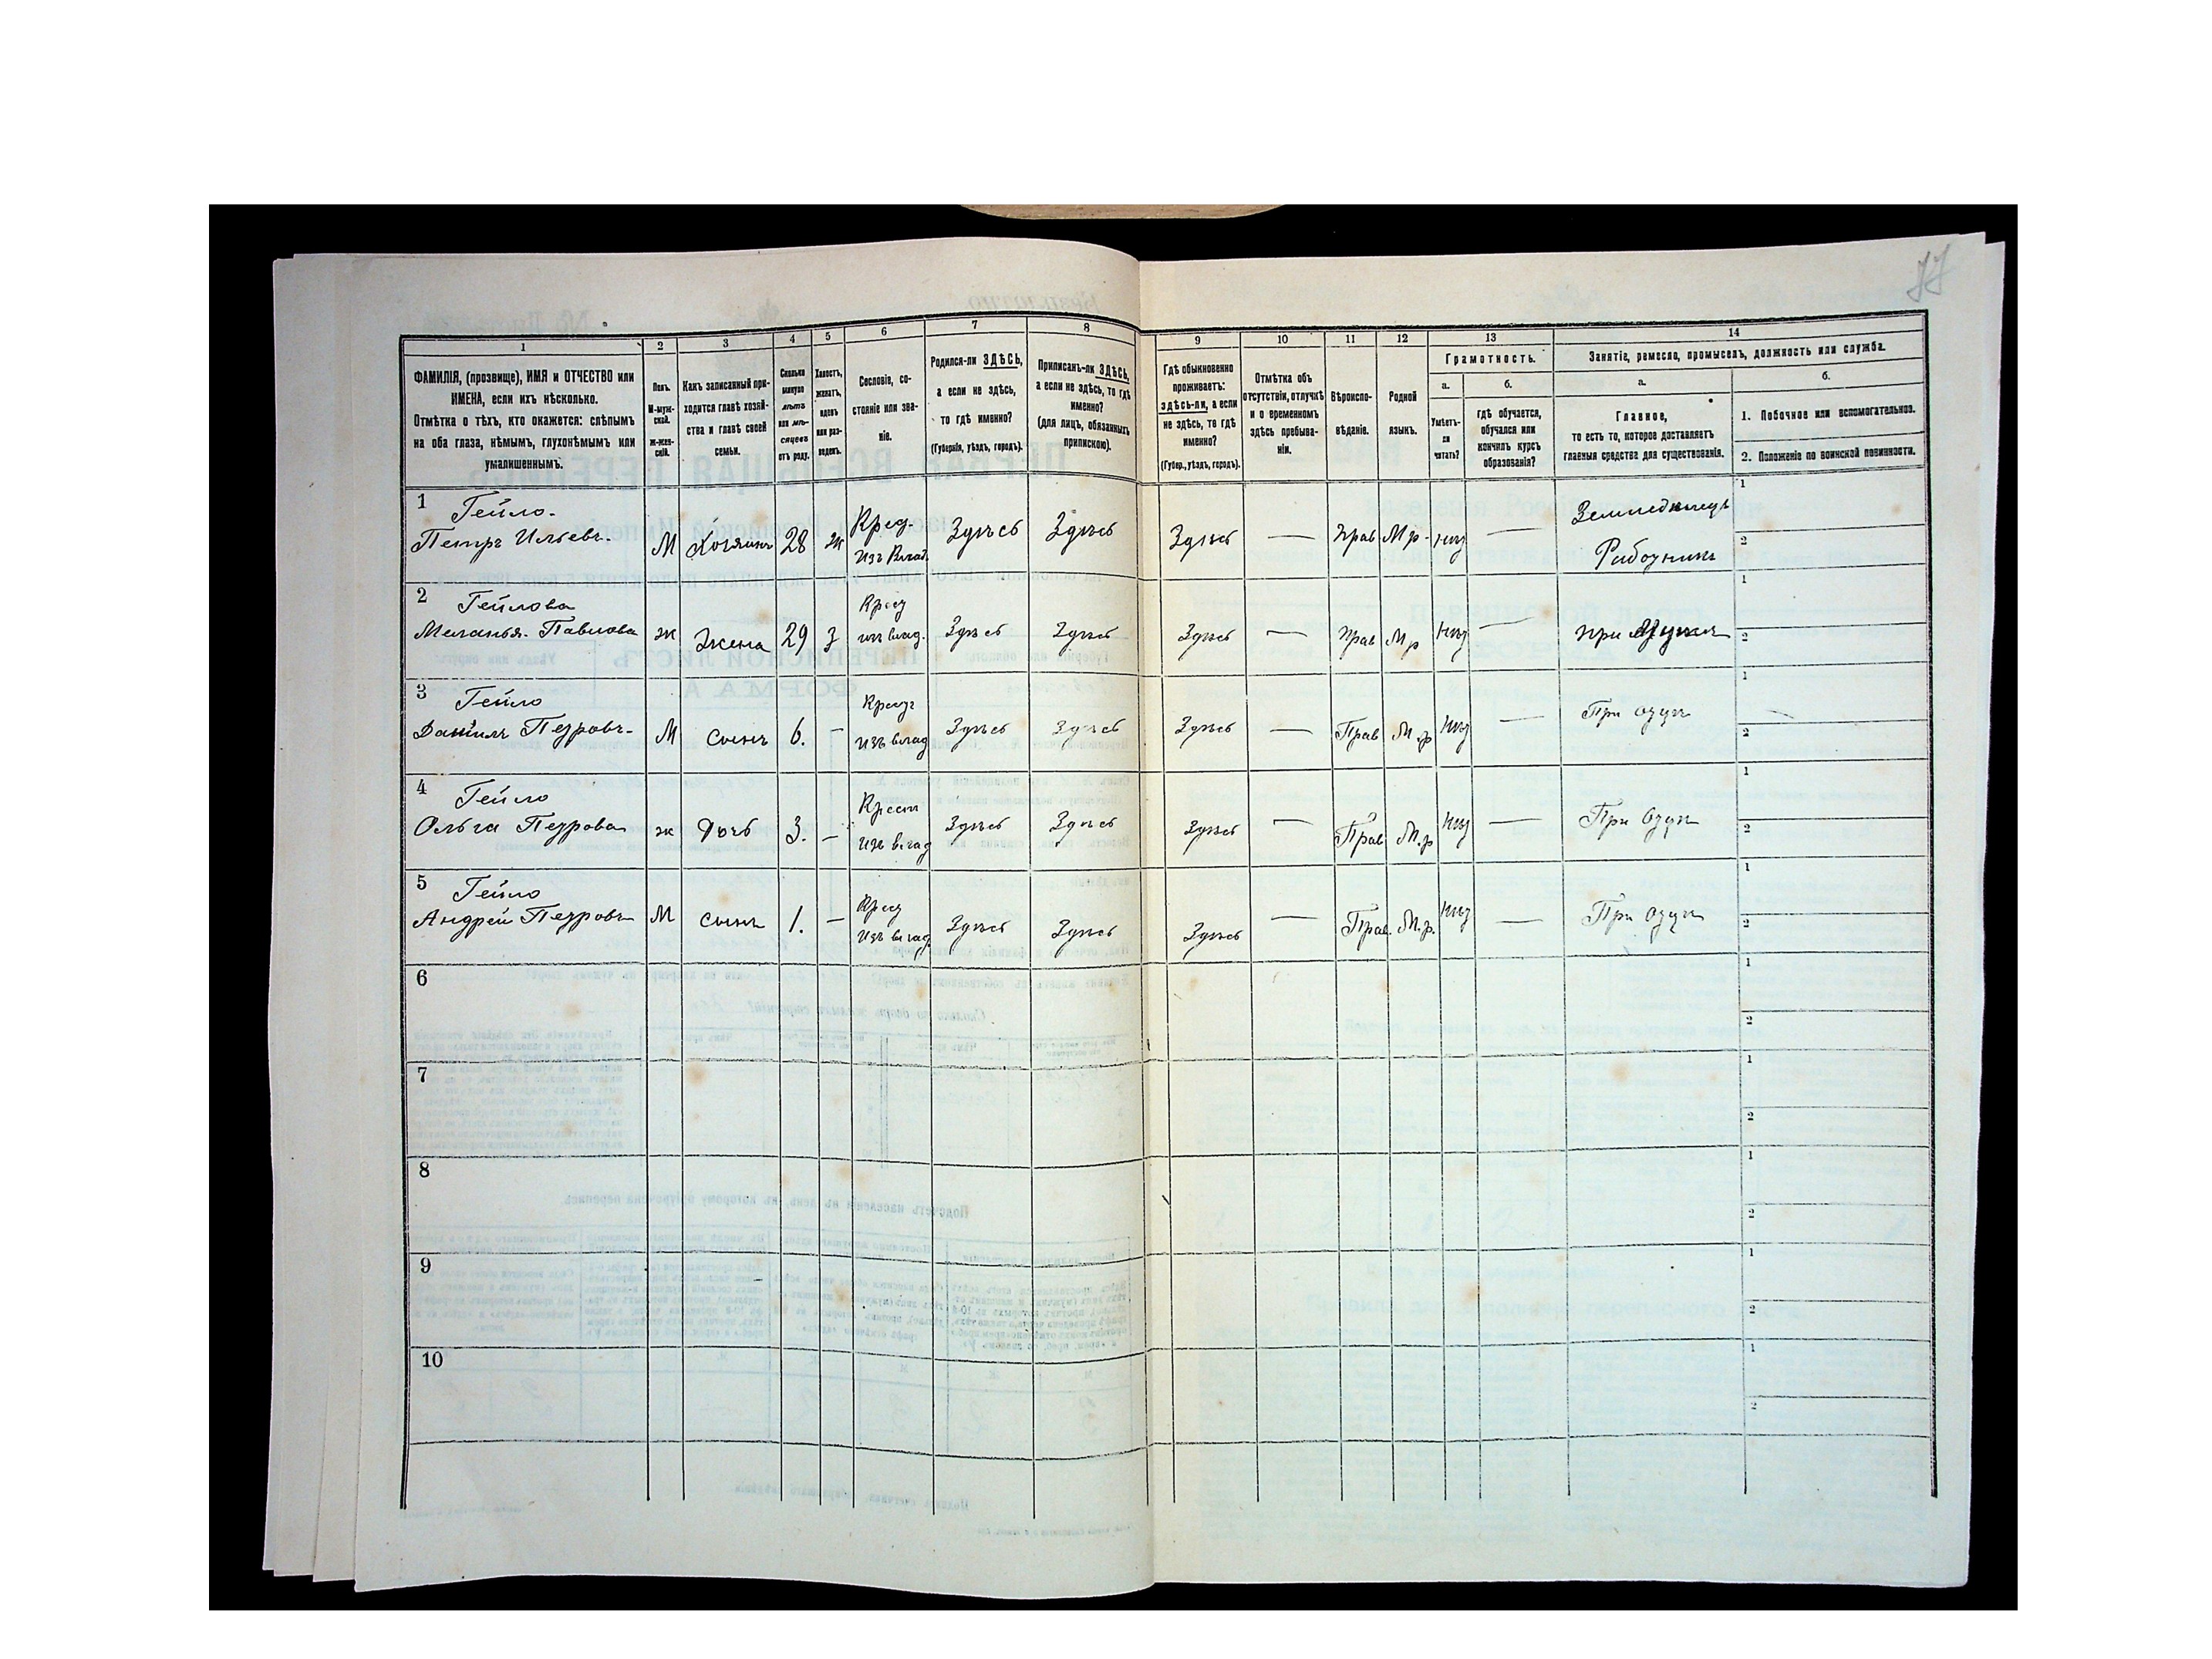 77
1 2 3 4 5 6 7 8 9 10 11 12 13 14
ФАМИЛІЯ, (прозвище), ИМЯ и ОТЧЕСТВО или
ИМЕНА, если ихъ нѣсколько.
Отмѣтка о тѣхъ, кто окажется: слѣпымъ
на оба глаза, нѣмымъ, глухонѣмымъ или
умалишеннымъ.
Полъ.
М-муж-
ской.
Ж-жен-
скій.
Какъ записанный при-
ходится главѣ хозяй-
ства и главѣ своей
семьи.
Сколько
минуло
лѣтъ
или мѣ-
сяцевъ
отъ роду.
Холостъ,
женатъ,
вдовъ
или раз-
веденъ.
Сословіе, со-
стояніе или зва-
ніе.
Родился-ли ЗДѢСЬ,
а если не здѣсь,
то гдѣ именно?
(Губернія, уѣздъ, городъ).
Приписанъ-ли ЗДѢСЬ,
а если не здѣсь, то гдѣ
именно?
(для лицъ, обязанныхъ
припискою).
Гдѣ обыкновенно
проживаетъ:
здѣсь-ли, а если
не здѣсь, то гдѣ
именно?
(Губер., уѣздъ, городъ).
Отмѣтка объ
отсутствіи, отлучкѣ
и о временномъ
здѣсь пребыва-
ніи.
Вѣроиспо-
вѣданіе.
Родной
языкъ.
Грамотность.
а.
Умѣетъ-
ли
читать?
б.
гдѣ обучается,
обучался или
кончилъ курсъ
образованія?
Занятіе, ремесло, промыселъ, должность или служба.
а.
Главное,
то есть то, которое доставляетъ
главныя средства для существованія.
б.
1. Побочное или вспомогательное.
2. Положеніе по воинской повинности.
1 Гейло.
Петръ Ильевъ. М Хозяинъ 28 ж Крес. Изъ Влад. Здѣсь Здѣсь Здѣсь — Прав М р. — Земледѣлецъ
Работникъ
1
2
2 Гейлова
Меланья Павлова ж Жена 29 З из влад. Здѣсь Здѣсь Здѣсь — Прав М р — при
1
2
3 Гейло
Данилъ Петровъ М Сынъ 6. — изъ влад Здѣсь Здѣсь Здѣсь — Прав М.р — При
1
2
4 Гейло
Ольга Петрова ж Дочь 3. — Крест изъ влад Здѣсь Здѣсь Здѣсь — Прав М.р — При
1
2
5 Гейло
Андрей Петровъ М Сынъ 1. — Изъ влад Здѣсь Здѣсь Здѣсь — Прав. М.р. — При
1
2
6
1
2
7
1
2
8
1
2
9
1
2
10
1
2